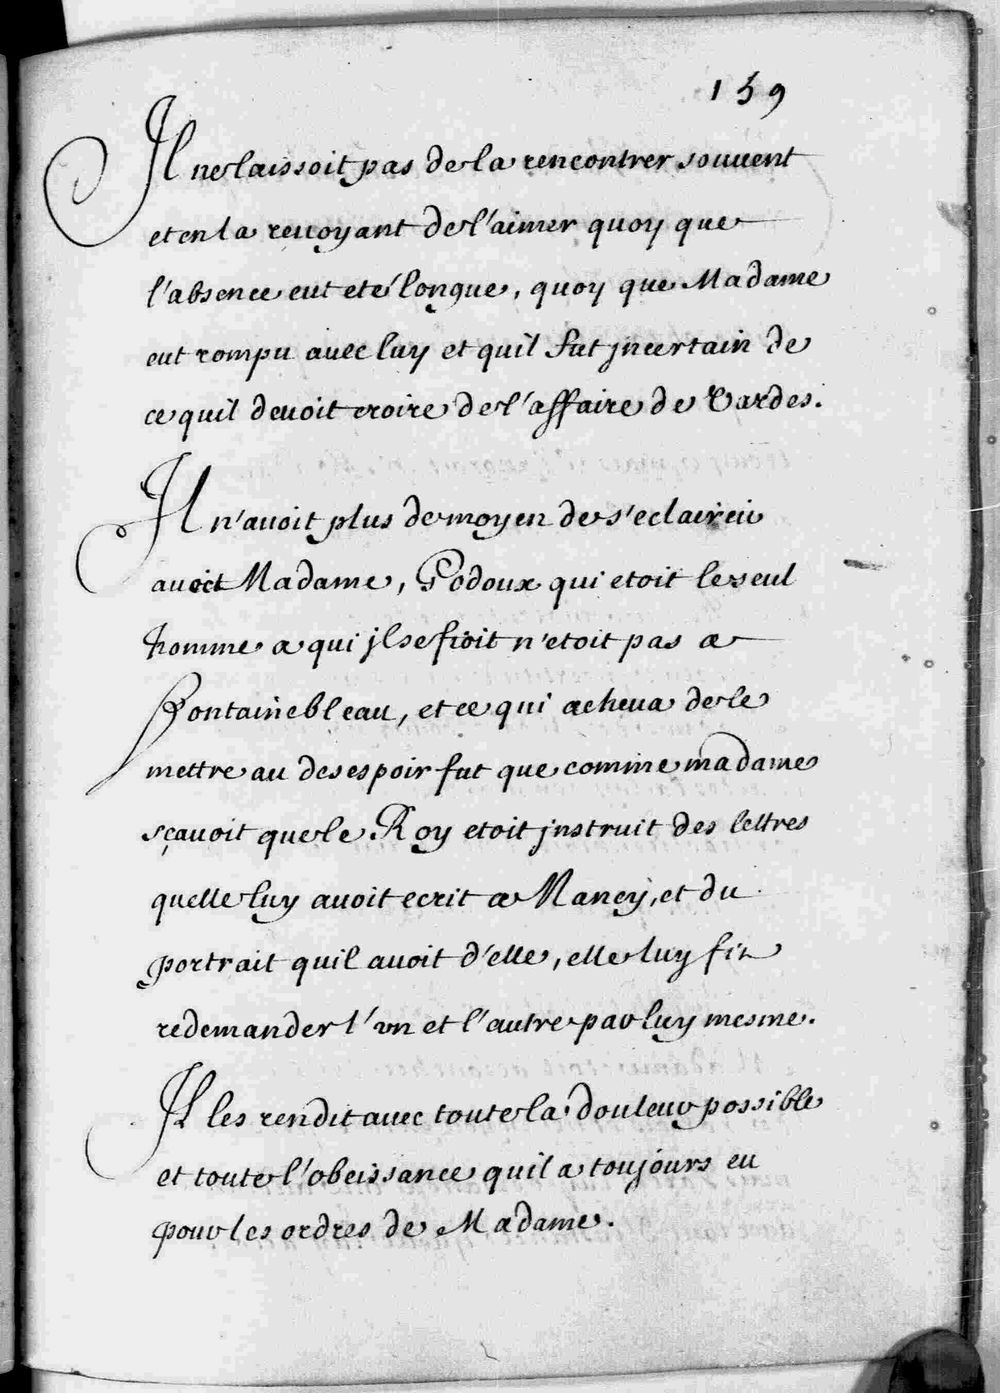 159
Il ne laissoit pas de la rencontrer souuent
et en la reuoyant de l'aimer quoy que
l'absence eut eté longue, quoy que Madame
eut rompu auec luy et quil fut jncertain de
ce quil deuoit croire de l'affaire de Vardes.
Il n'auoit plus de moyen de s'eclaircir
auec Madame, Podoux qui etoit le seul
homme a qui jl se fioit n'etoit pas a
Fontainebleau, et ce qui acheua de le
mettre au desespoir fut que comme madame
sçauoit que le Roy etoit jnstruit des lettres
quelle luy auoit ecrit a Nancy, et du
portrait quil auoit d'elle, elle luy fit
redemander l'vn et l'autre par luy mesme.
Il les rendit auec toute la douleur possible
et toute l'obeissance quil a toujours eu
pour les ordres de Madame.